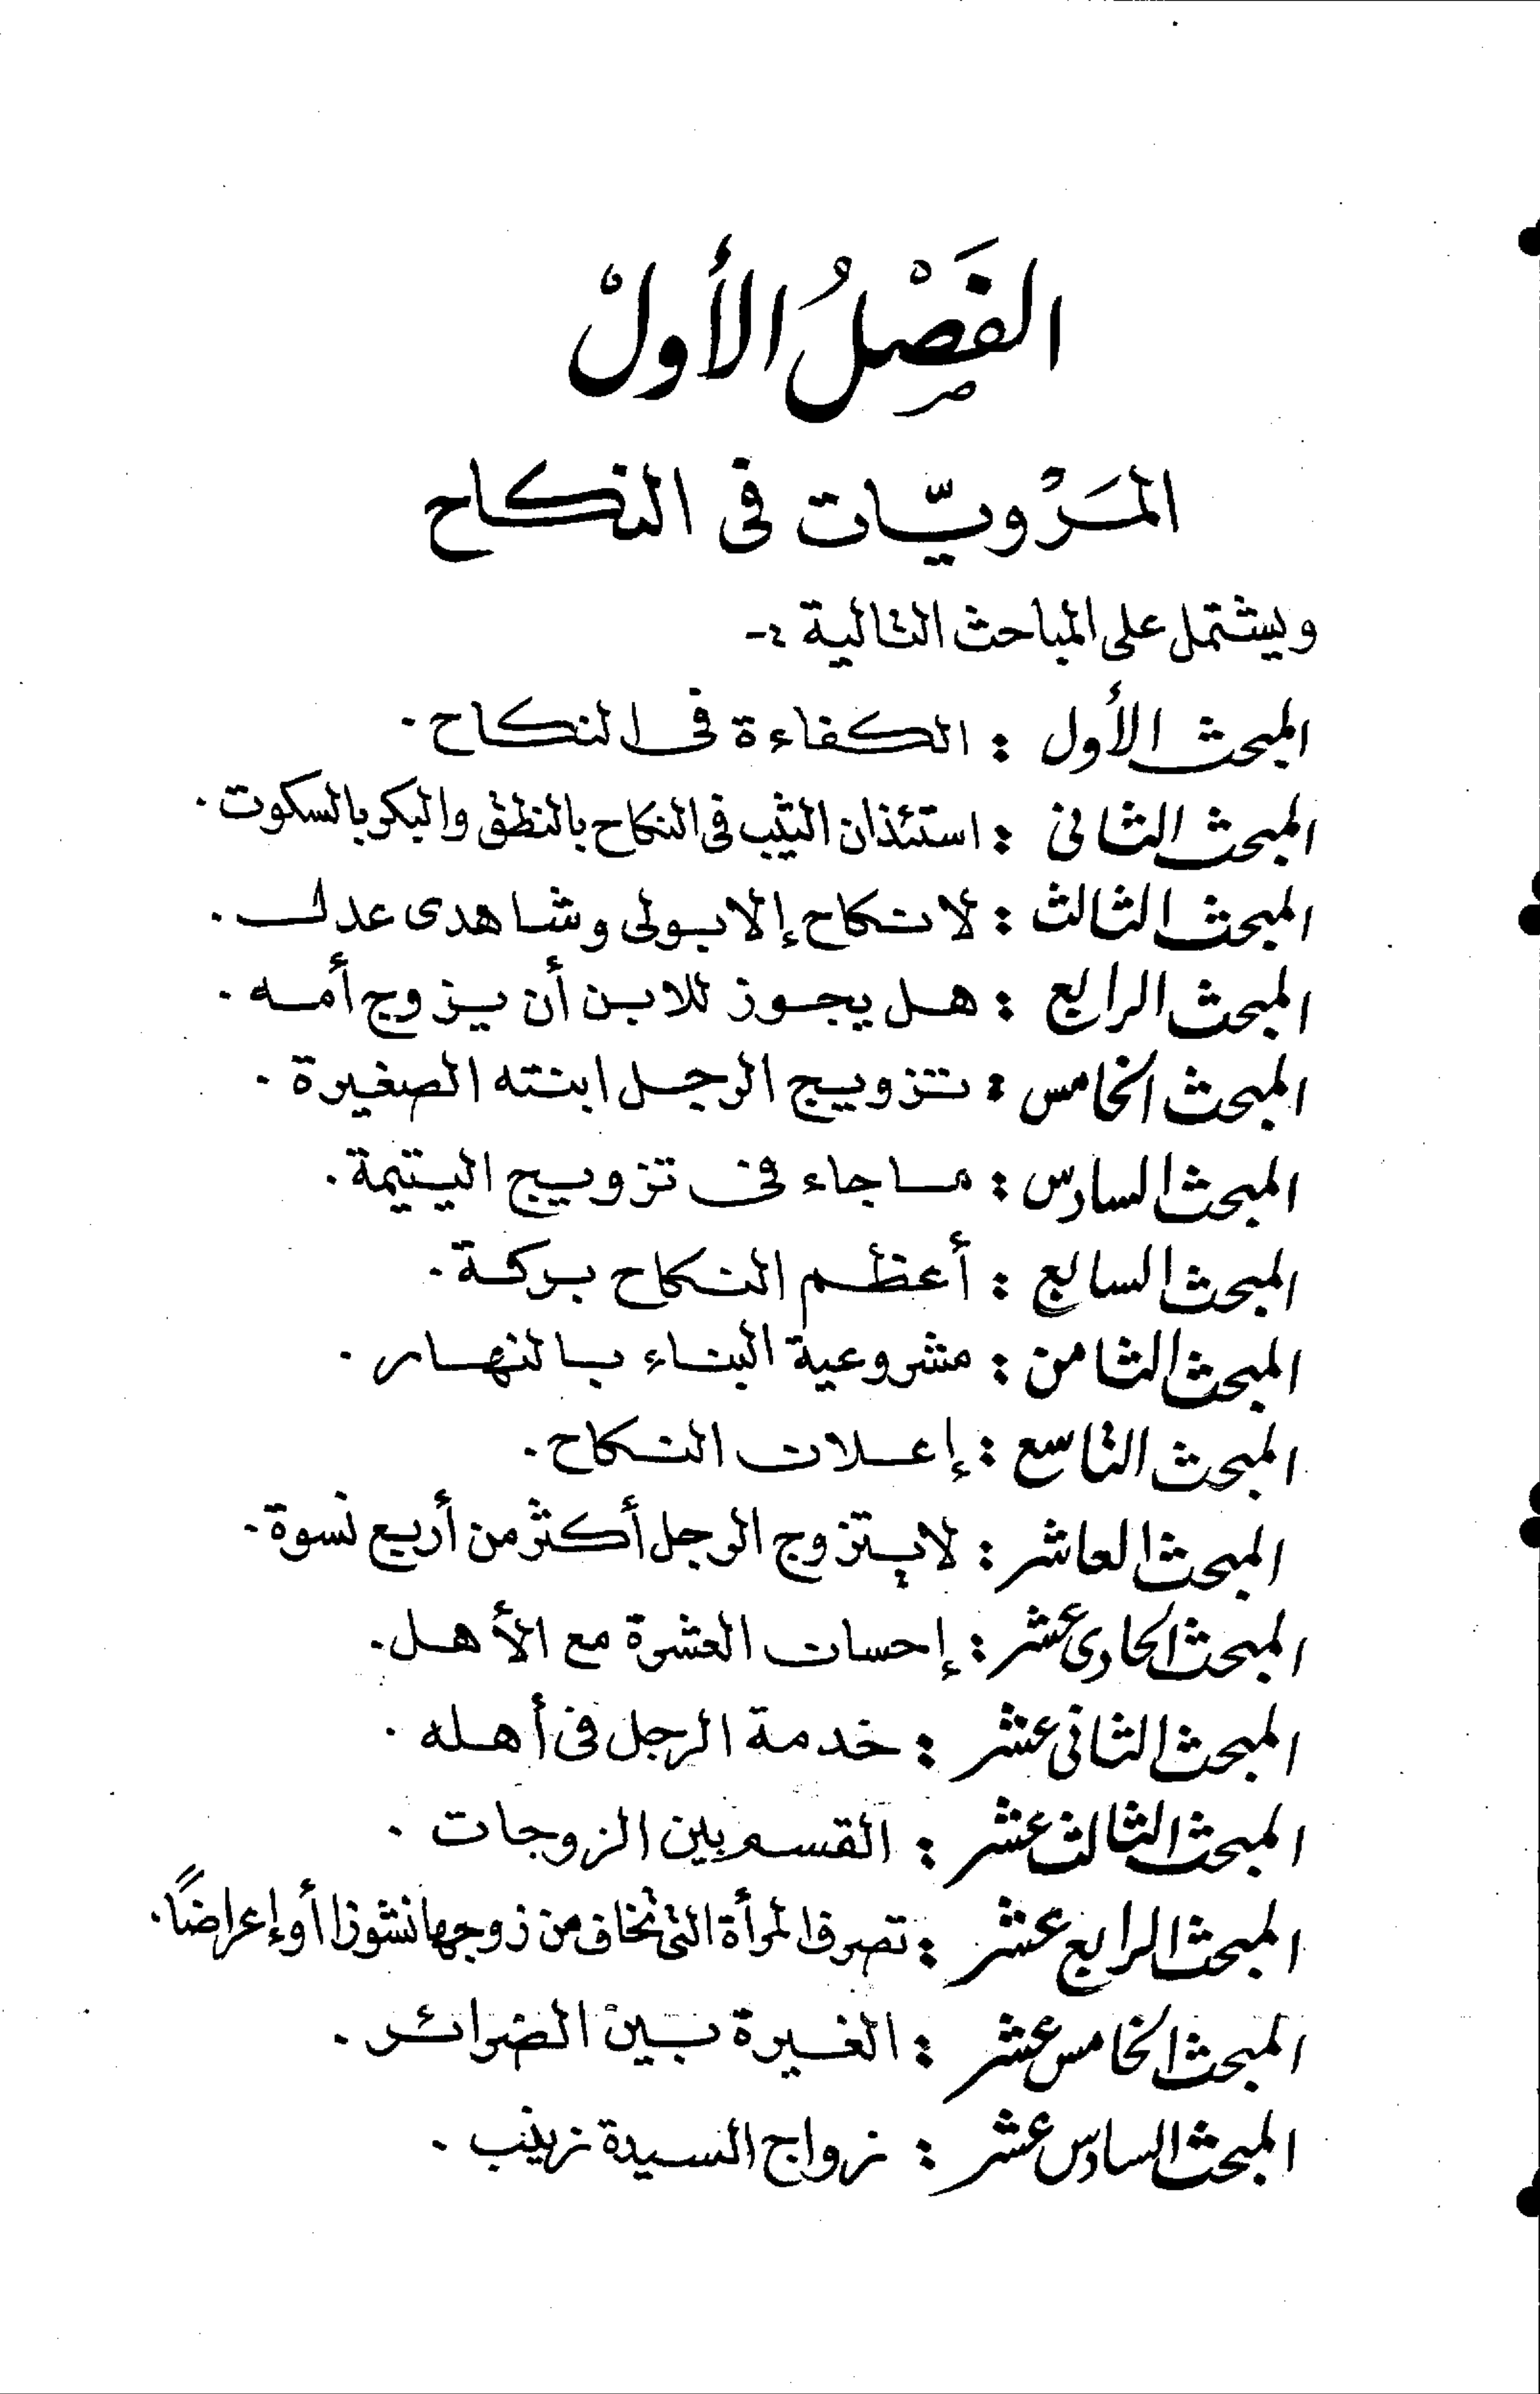 الفَصْلُ الأولْ
المَرْويّات فى النكاح
ويشتمل على المباحث التالية :-
المبحث الأول : الكفاءة فى النكاح .
المبحث الثانى : استئذان الثيب فى النكاح بالنطق والبكر بالسكوت .
المبحث الثالث : لا نكاح إلا بولى وشاهدى عدل .
المبحث الرابع : هل يجوز للابن أن يزوج أمه .
المبحث الخامس : تزويج الرجل ابنته الصغيرة .
المبحث السادس : ما جاء فى تزويج اليتيمة .
المبحث السابع : أعظم النكاح بركة .
المبحث الثامن : مشروعية البناء بالنهار .
المبحث التاسع : إعلان النكاح .
المبحث العاشر : لا يتزوج الرجل أكثر من أربع نسوة .
المبحث الحادى عشر : إحسان العشرة مع الأهل .
المبحث الثانى عشر : خدمة الرجل فى أهله .
المبحث الثالث عشر : القسم بين الزوجات .
المبحث الرابع عشر : تصرف المرأة التى تخاف من زوجها نشوزا أو إعراضاً .
المبحث الخامس عشر : الغيرة بين الضرائر .
المبحث السادس عشر : زواج السيدة زينب .